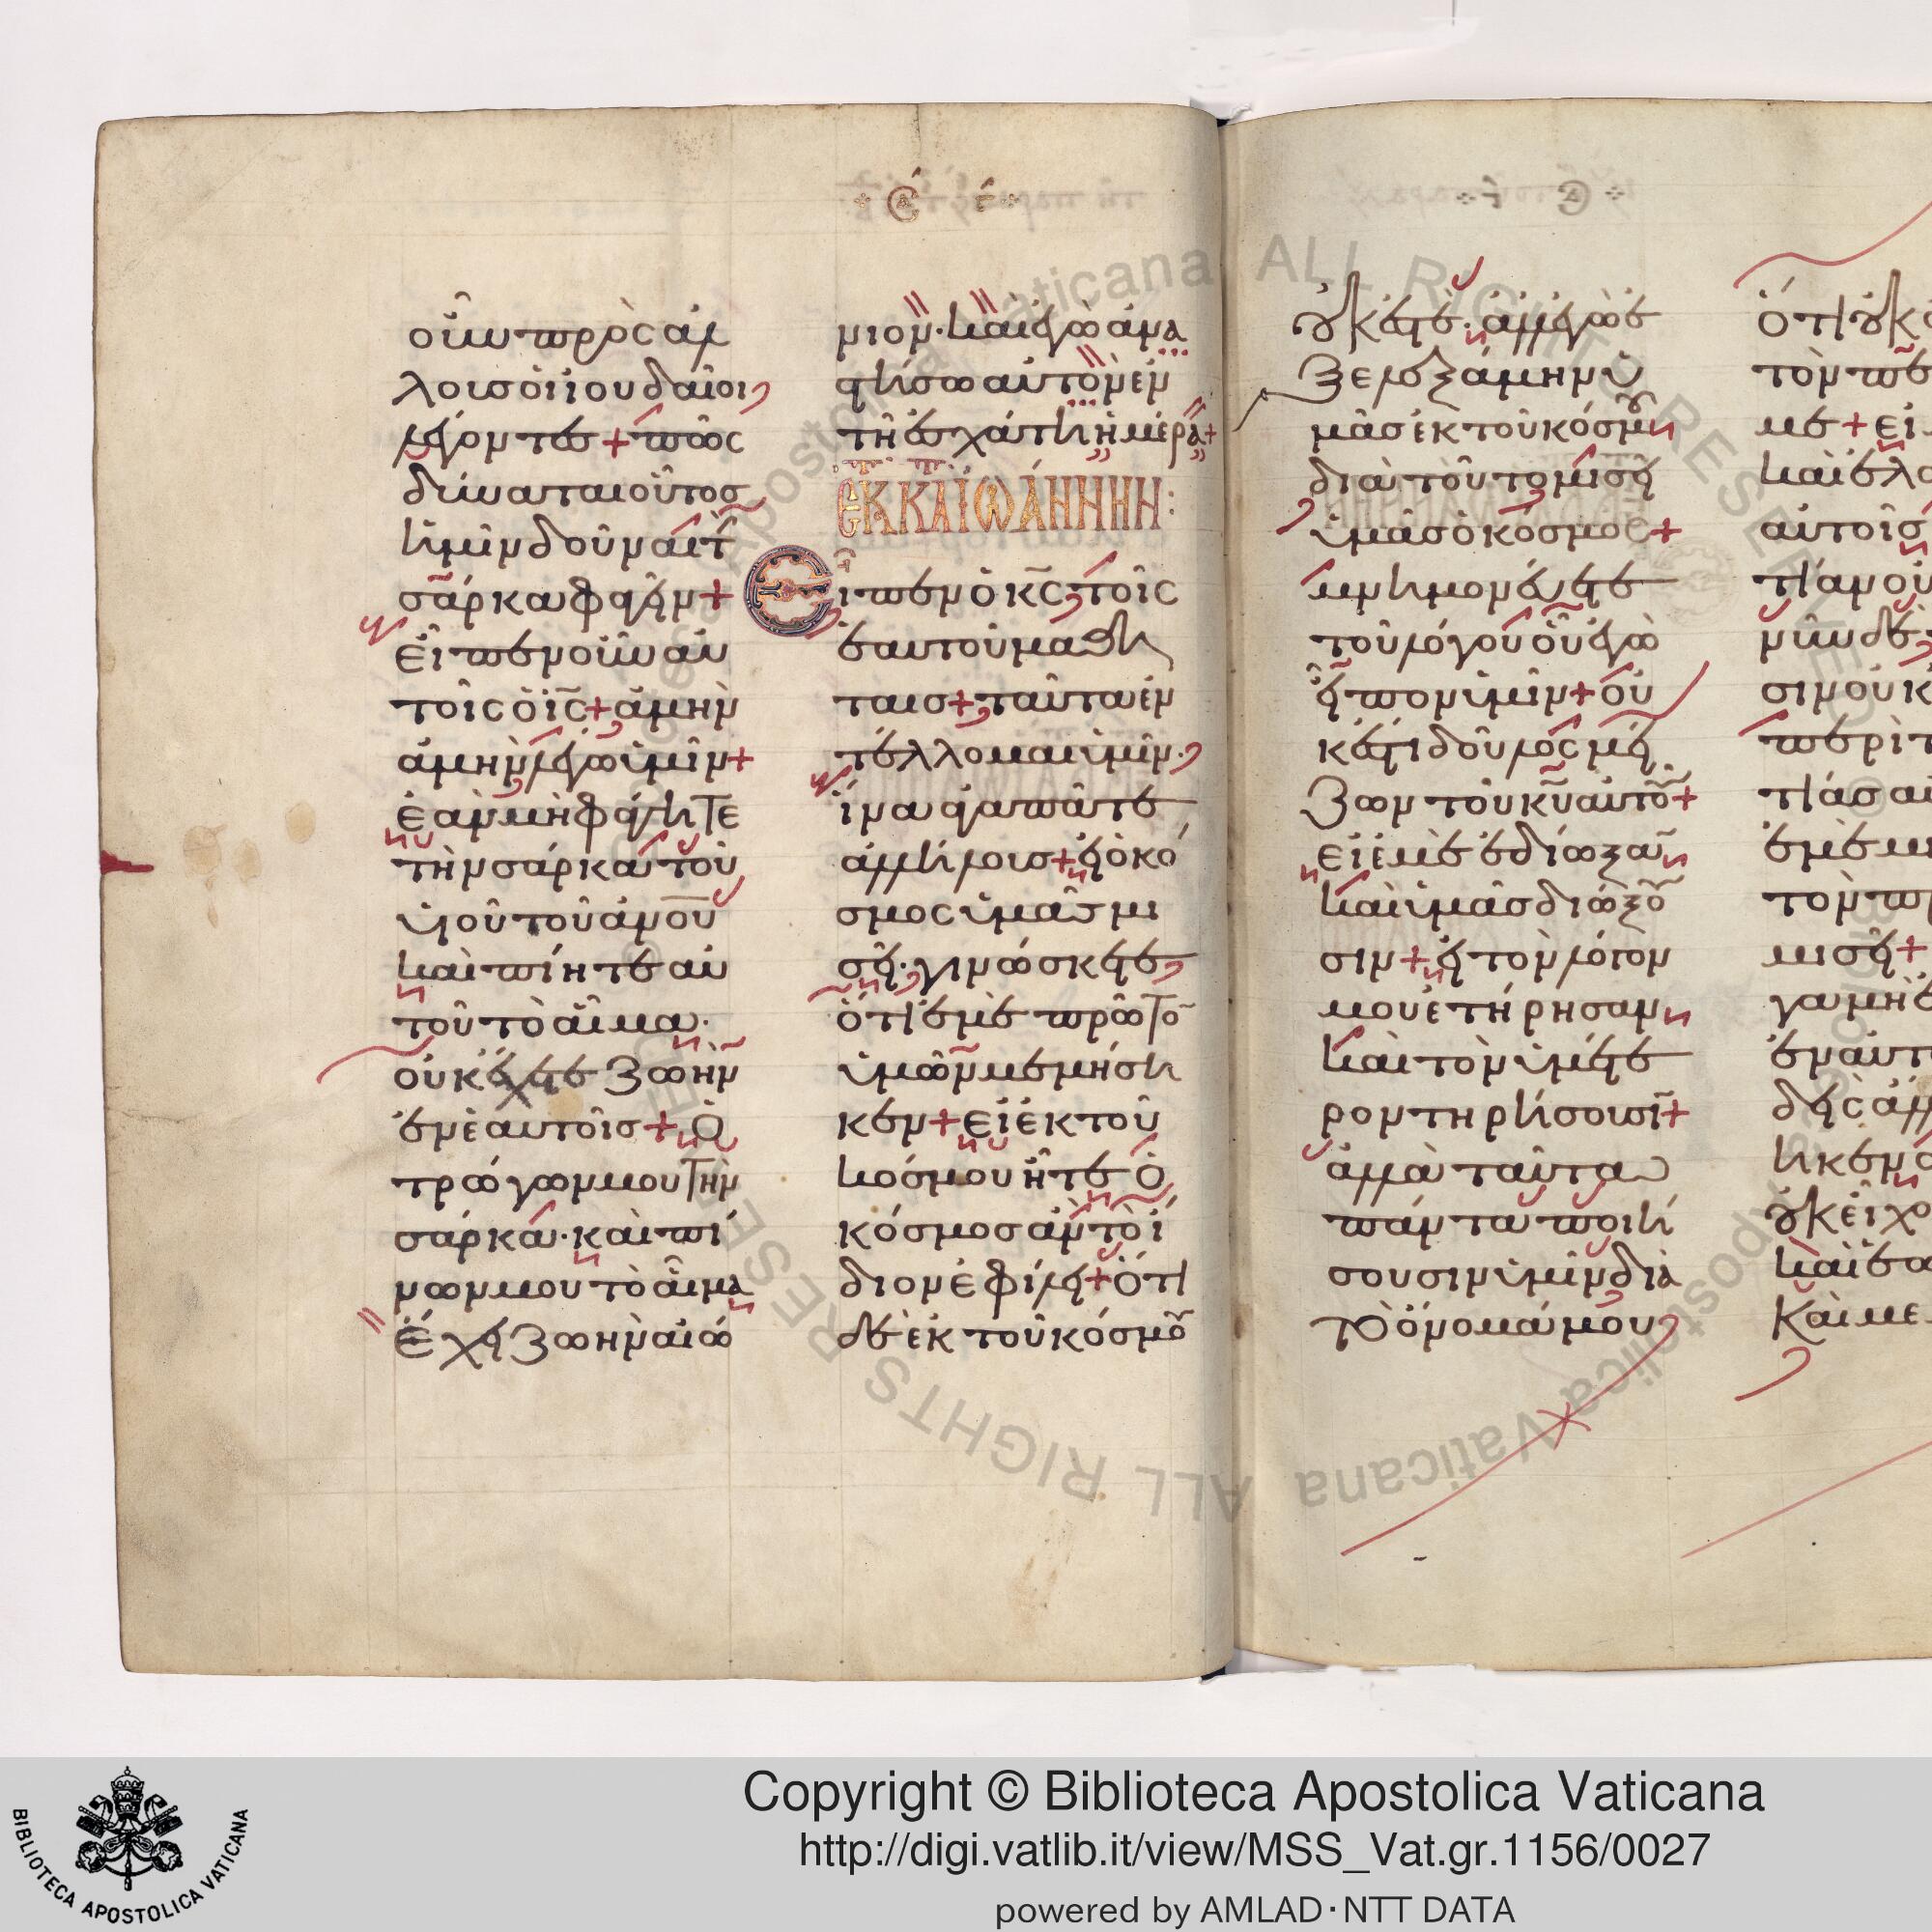 οὖν πρὸς ἀλ
λήλοις οἱ ἰουδαῖοι
λέγοντες + πῶς
δύναται οὗτος
ἡμῖν δοῦναι τ
σάρκα φαγεῖν +
εἶπεν οὖν αὐ
τοῖς ὁ ις + ἀμὴν
ἀμὴν λέγω ὑμῖν +
ἐὰν μὴ φάγητε
τὴν σάρκα τοῦ
υἱοῦ τοῦ ανου
καὶ πίητε αὐ
τοῦ τὸ αἷμα·
οὐκ ἔχετε ζωὴν
ἐν ἑαυτοῖς + Ὁ
τρώγων μου τὴν
σάρκα· καὶ πί
νων μου τὸ αἷμα
ἔχει ζωὴν αἰώ
Ϛ Ε
νιον· καὶ ἐγὼ ἀνα
στήσω αὐτὸν ἐν
τῇ ἐσχάτῃ ἡμέρα +
ἘΚ Κ ΑΪΩΆΝΝΗΝ:
Εἶπεν ὁ κς τοῖς
ἑαυτοῦ μαθη
ταῖς + ταῦτα ἐν
τέλλομαι ὑμῖν·
ἵνα ἀγαπᾶτε
ἀλλήλους + εἰ ὁ κό
σμος ὑμᾶς μι
σεῖ· γινώσκετε
ὅτι ἐμὲ πρῶτο
ὑμῶν μεμίση
κεν + εἰ ἐκ τοῦ
κόσμου ἦτε ὁ
κόσμος ἂν τὸ ἴ
διον ἐφίλει + Ὅτι
δὲ ἐκ τοῦ κόσμου
οὐκ ἐστὲ· ἀλλ' ἐγὼ ἐ
ξελεξάμην ὑ
μᾶς ἐκ τοῦ κόσμου
διὰ τοῦτο μισεῖ
ὑμᾶς ὁ κόσμος +
μνημονεύετε
τοῦ λόγου οὗ ἐγὼ
εἶπον ὑμῖν + οὐ
κ ἔστι δοῦλος μεί
ζων τοῦ κυ αὐτοῦ +
εἰ ἐμὲ ἐδίωξαν
καὶ ὑμᾶς διώξου
σιν + εἰ τὸν λόγον
μου ἐτήρησαν
καὶ τὸν ὑμέτε
ρον τηρήσουσι +
ἀλλὰ ταῦτα
πάντα ποιή
σουσιν ὑμῖν διὰ
τὸ ὄνομά μου
ὅτι οὐκ
τὸν πέ
με + εἰ
καὶ ἐλά
αὐτοῖς
τίαν οὐ
νῦν δὲ
σιν οὐκ
περὶ τ
τίας αὐ
ἐμὲ μι
τὸν π
μισεῖ +
γα μὴ ἐ
ἐν αὐτ
δεὶς ἄλλ
ηκεν
οὐκ εἶχο
καὶ ἑω
Καὶ με
Copyright © Biblioteca Apostolica Vaticana
http://digi.vatlib.it/view/MSS_Vat.gr.1156/0027
powered by AMLAD·NTT DATA
BIBLIOTECA APOSTOLICA VATICANA